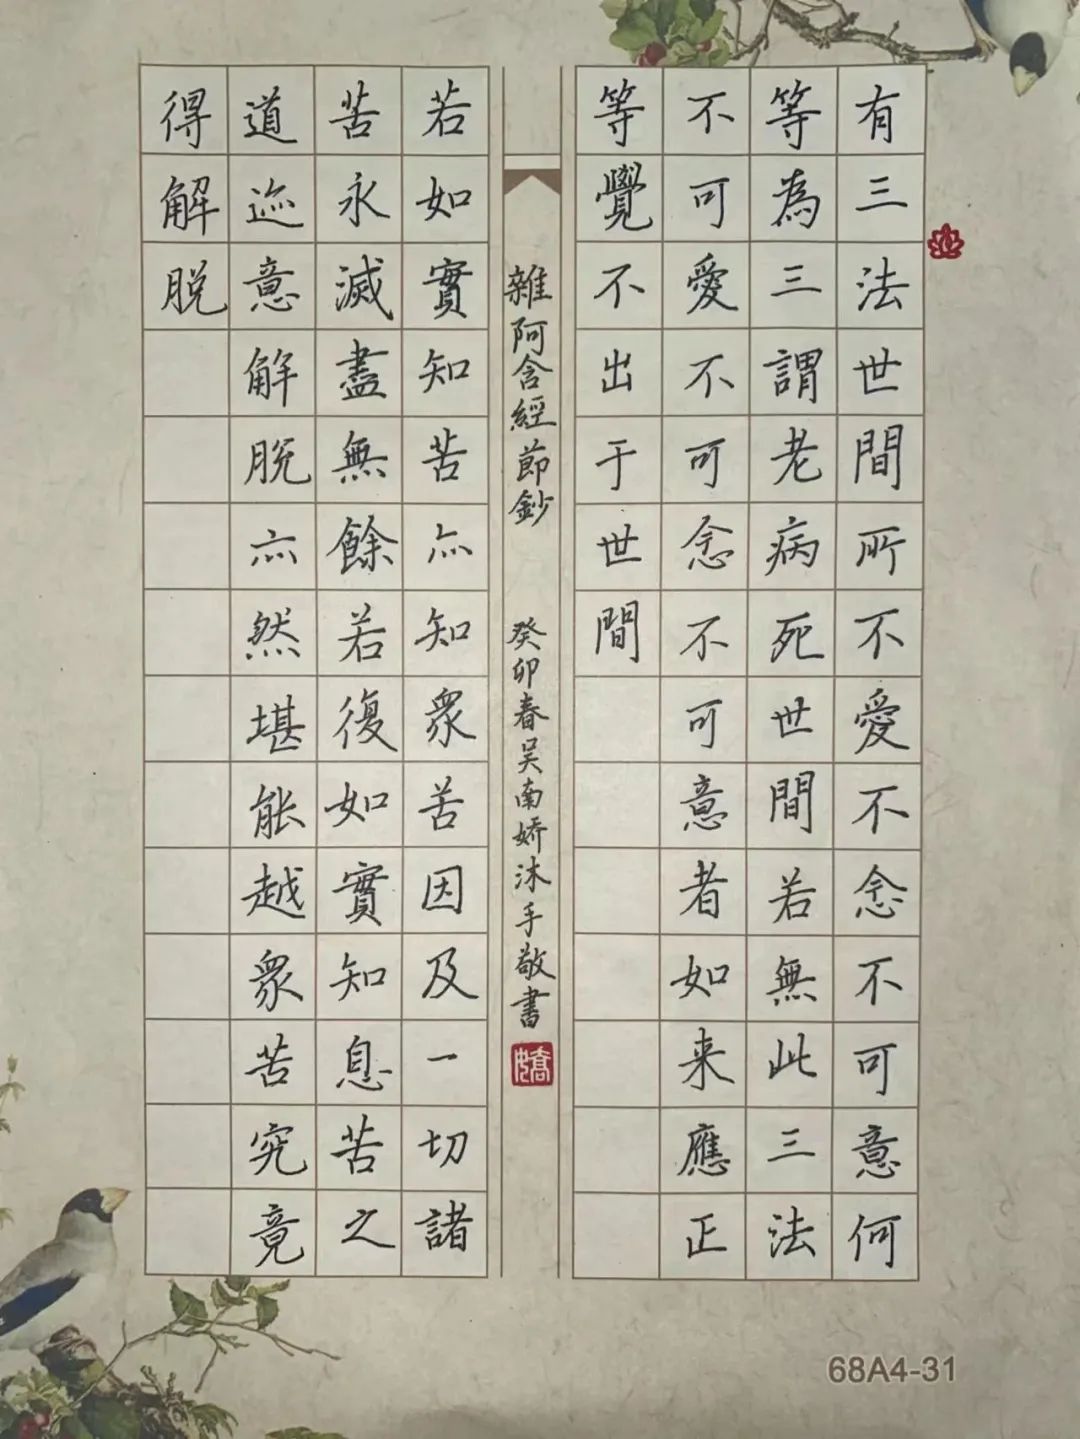 有三法世間所不愛不念不可意何
等為三謂老病死世間若無此三法
不可愛不可念不可意者如来應正
等覺不出于世間
雜阿含經節鈔 癸卯春吴南嬌沐手敬書
嬌
若如實知苦亦知衆苦因及一切諸
苦永滅盡無餘若復如實知息苦之
道迹意解脱亦然堪能越衆苦究竟
得解脱
68A4-31